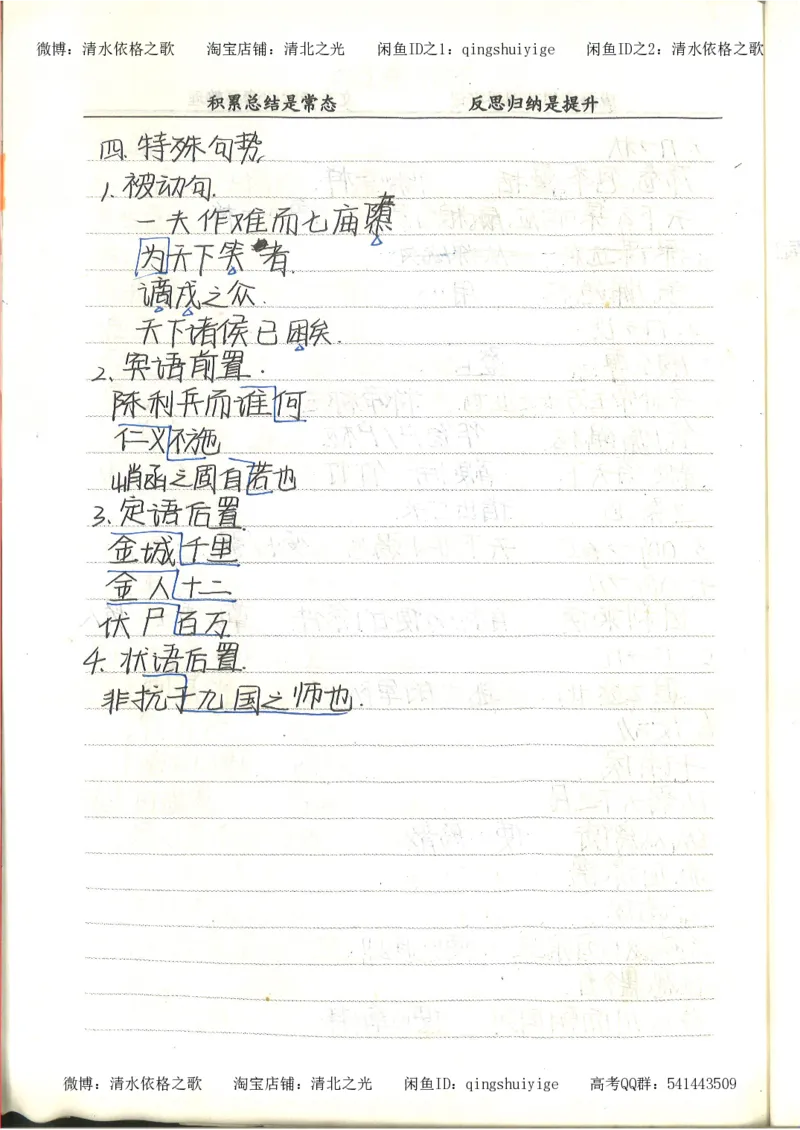 微博：清水依格之歌 淘宝店铺：清北之光 闲鱼ID之1：qingshuiyige 闲鱼ID之2：清水依格之歌
积累总结是常态 反思归纳是提升
四.特殊句势
1.被动句.
一夫作难而七庙隳
为天下笑者.
谪戍之众.
天下诸侯已困矣.
2.宾语前置.
陈利兵而谁何
仁义不施
崤函之固自若也
3.定语后置.
金城千里
金人十二
伏尸百万
4.状语后置.
非抗于九国之师也.
微博：清水依格之歌 淘宝店铺：清北之光 闲鱼ID：qingshuiyige 高考QQ群：541443509